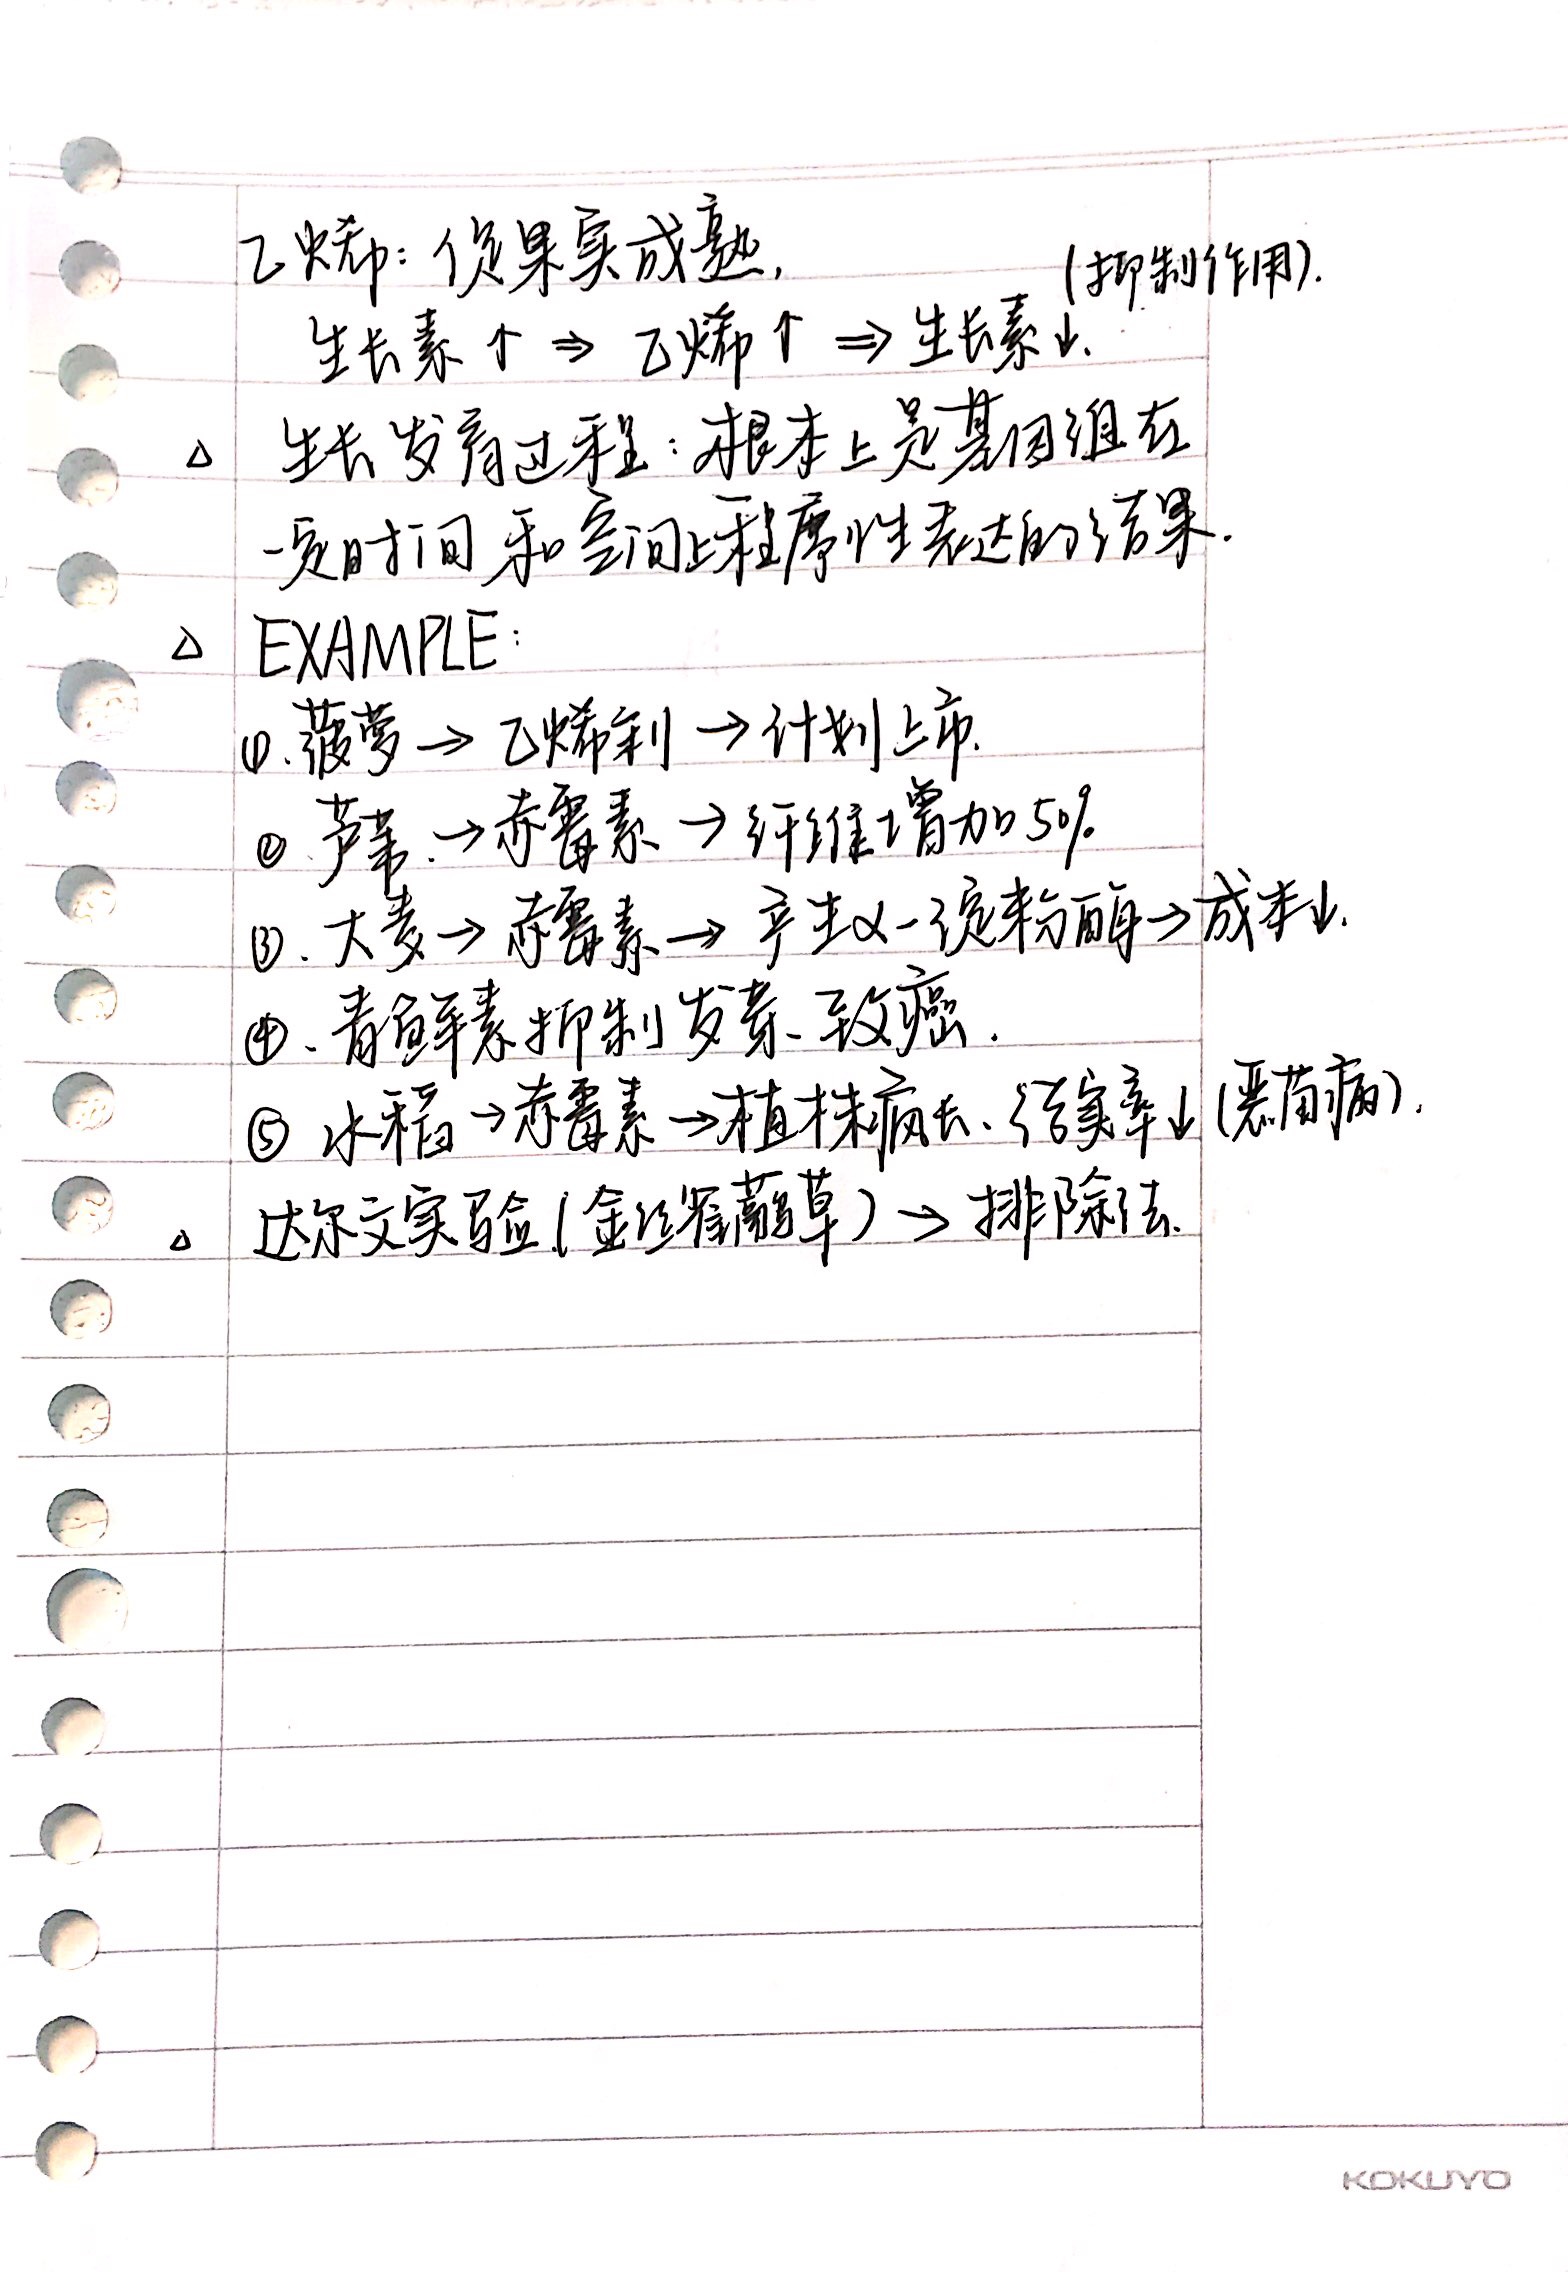 乙烯：促果实成熟，
(抑制作用).
生长素↑ ⇒ 乙烯↑ ⇒ 生长素↓.
△ 生长发育过程：根本上是基因组在
一定时间和空间上程序性表达的结果.
△ EXAMPLE:
①. 菠萝→乙烯利→计划上市.
② 芦苇.→赤霉素→纤维增加50%
③. 大麦→赤霉素→产生α-淀粉酶→成本↓.
④、青鲜素抑制发芽、致癌.
⑤ 水稻→赤霉素→植株疯长、结实率↓(恶苗病).
△ 达尔文实验(金丝雀虉草)→排除法.
KOKUYO